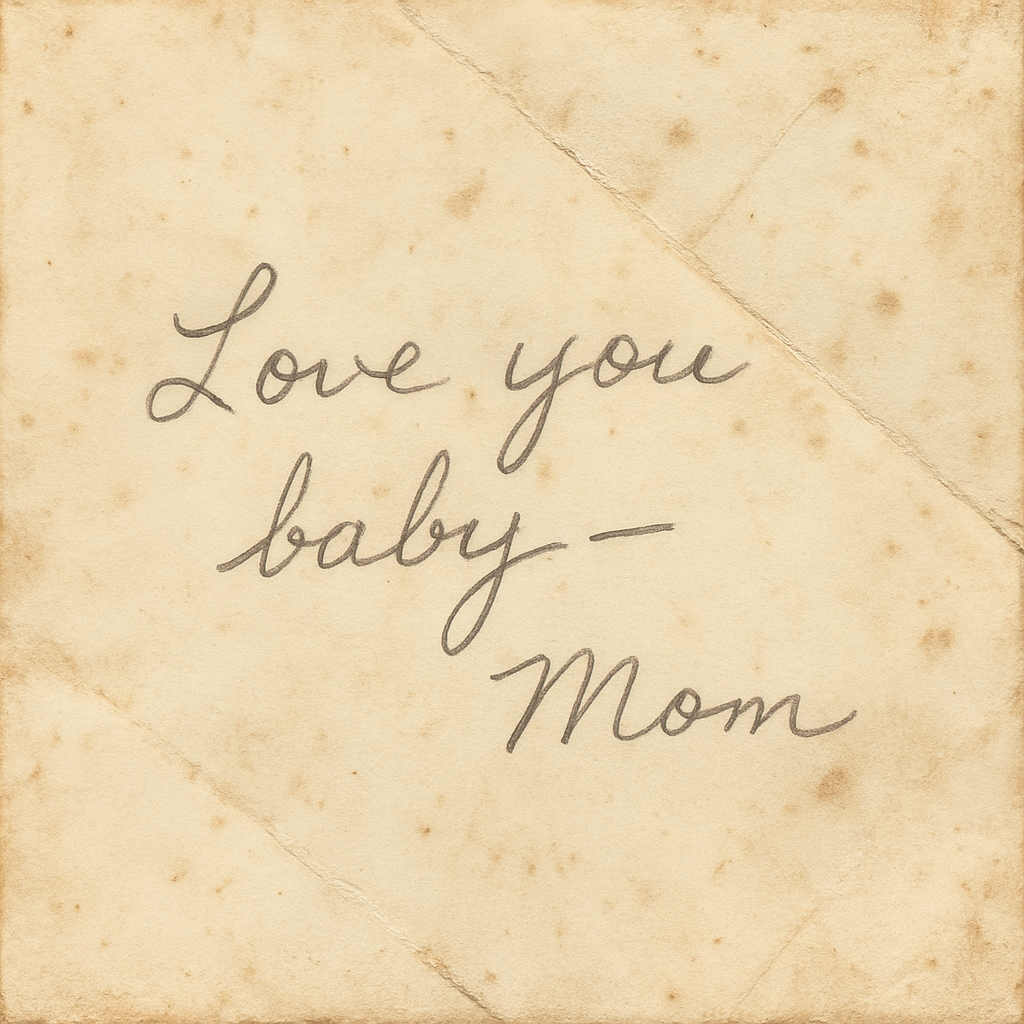 Love you
baby —
Mom